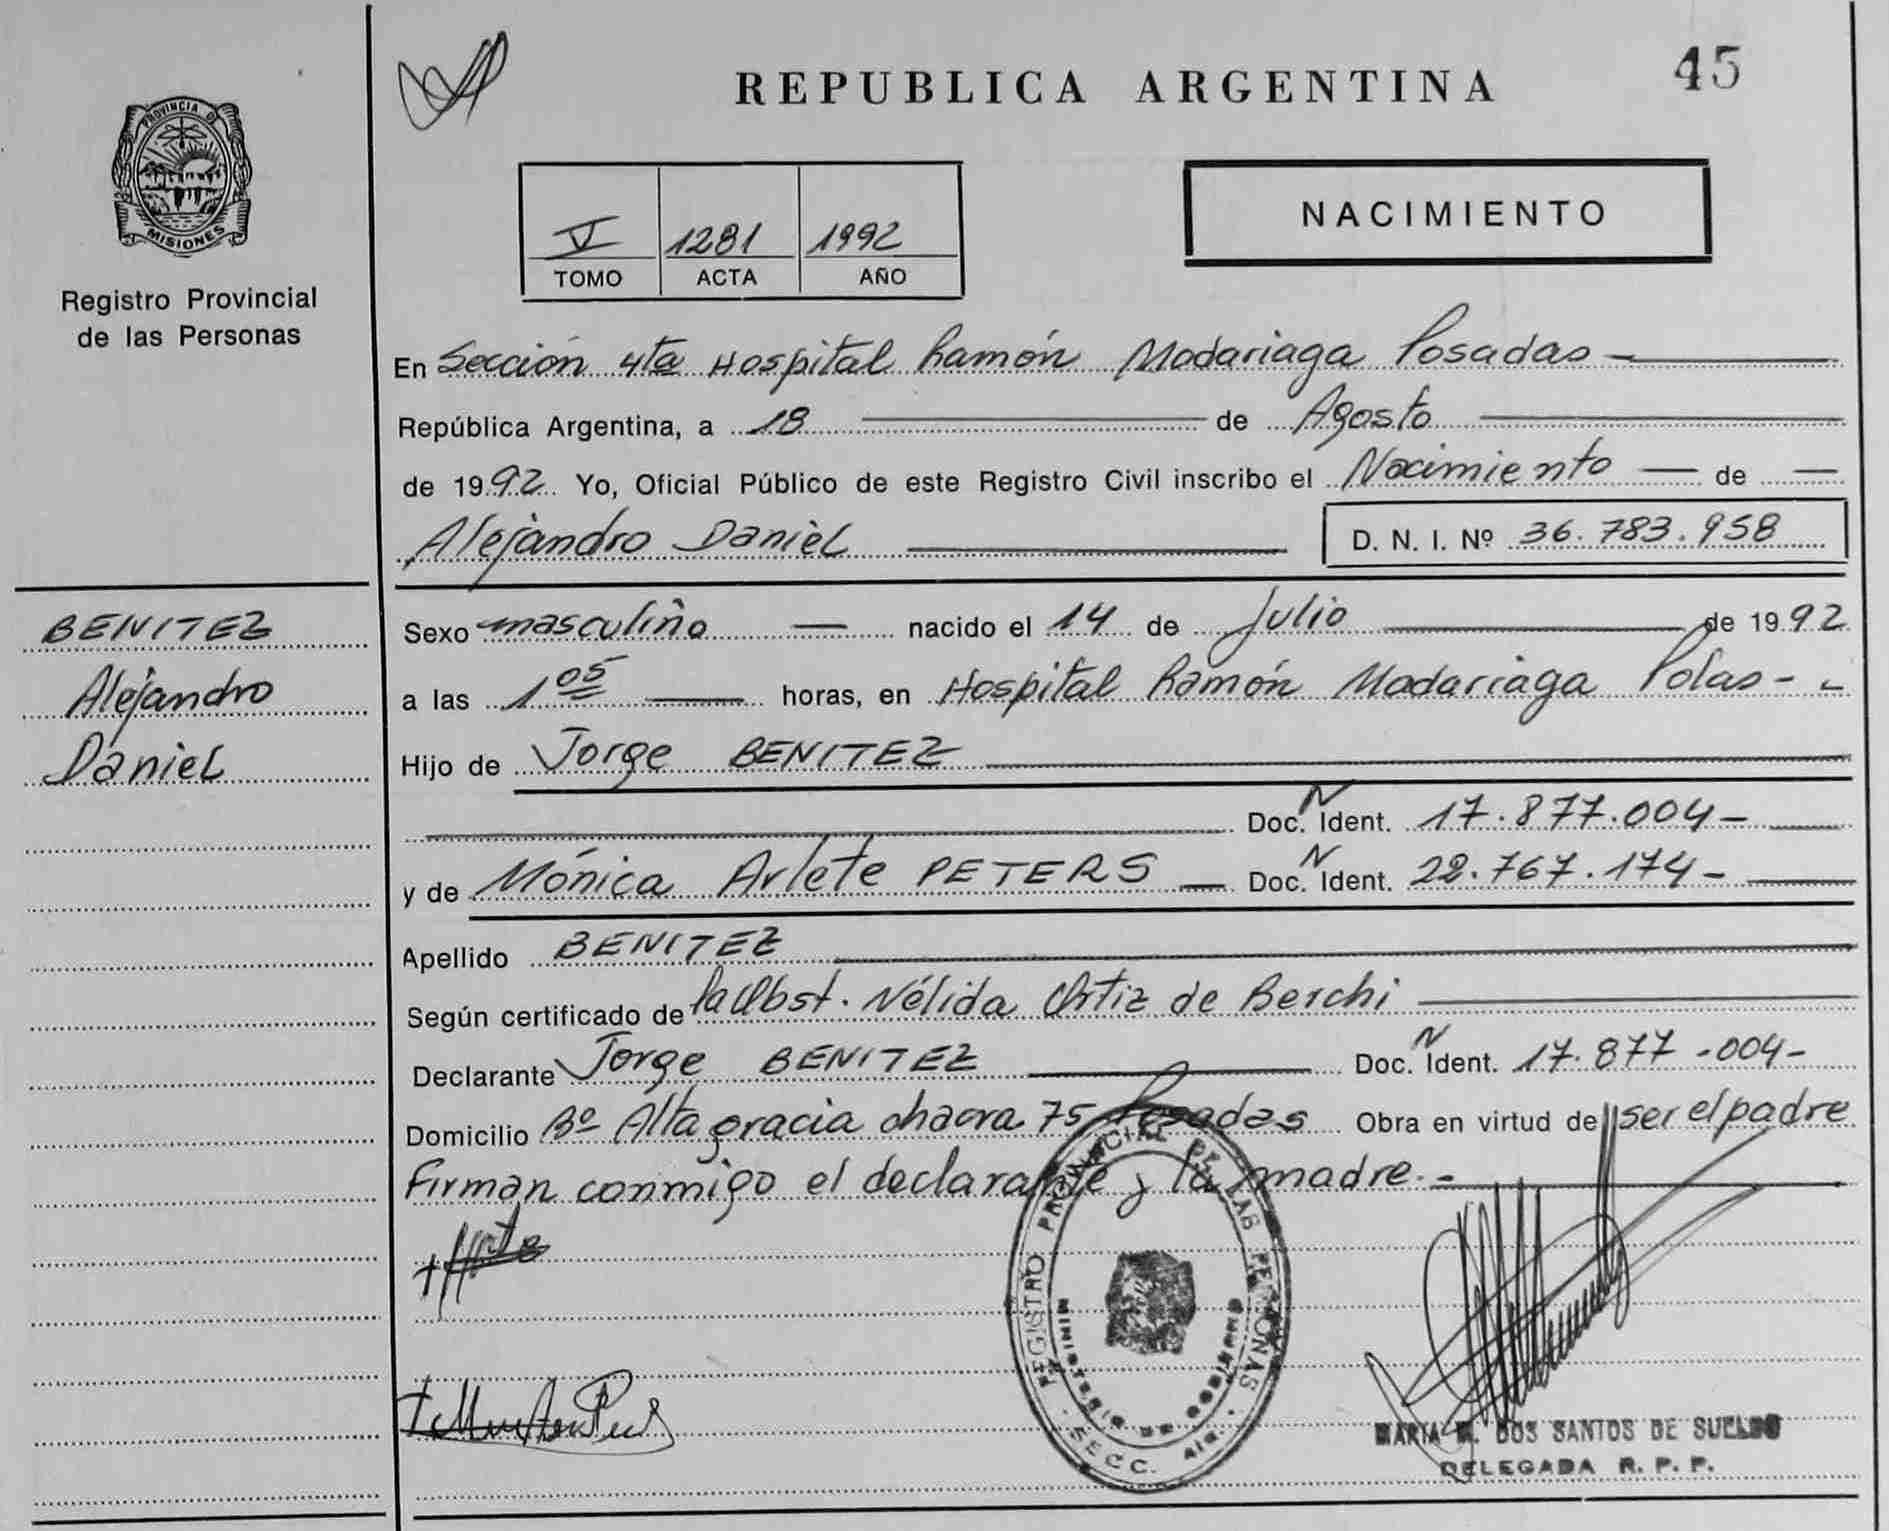 45
REPUBLICA ARGENTINA
PROVINCIA DE
MISIONES
Registro Provincial
de las Personas
NACIMIENTO
V 1281 1992
TOMO ACTA AÑO
En Sección 4ta Hospital Ramón Madariaga Posadas
República Argentina, a 18 de Agosto
de 1992 Yo, Oficial Público de este Registro Civil inscribo el Nacimiento de
Alejandro Daniel D. N. I. Nº 36.783.958
BENITEZ
Alejandro
Daniel
Sexo masculino nacido el 14 de Julio de 1992
a las 1 05 horas, en Hospital Ramón Madariaga Pdas
Hijo de Jorge BENITEZ
Doc. N Ident. 17.877.004
y de Mónica Arlete PETERS Doc. N Ident. 22.767.174
Apellido BENITEZ
Según certificado de la Obst. Nélida Ortiz de Berchi
Declarante Jorge BENITEZ Doc. N Ident. 17.877.004
Domicilio Bº Alta gracia chacra 75 Posadas Obra en virtud de ser el padre
Firman conmigo el declarante y la madre.
REGISTRO PROVINCIAL DE LAS PERSONAS
MINISTERIO DE GOBIERNO
SECC.
MARIA M. DOS SANTOS DE SUELDO
DELEGADA R. P. P.